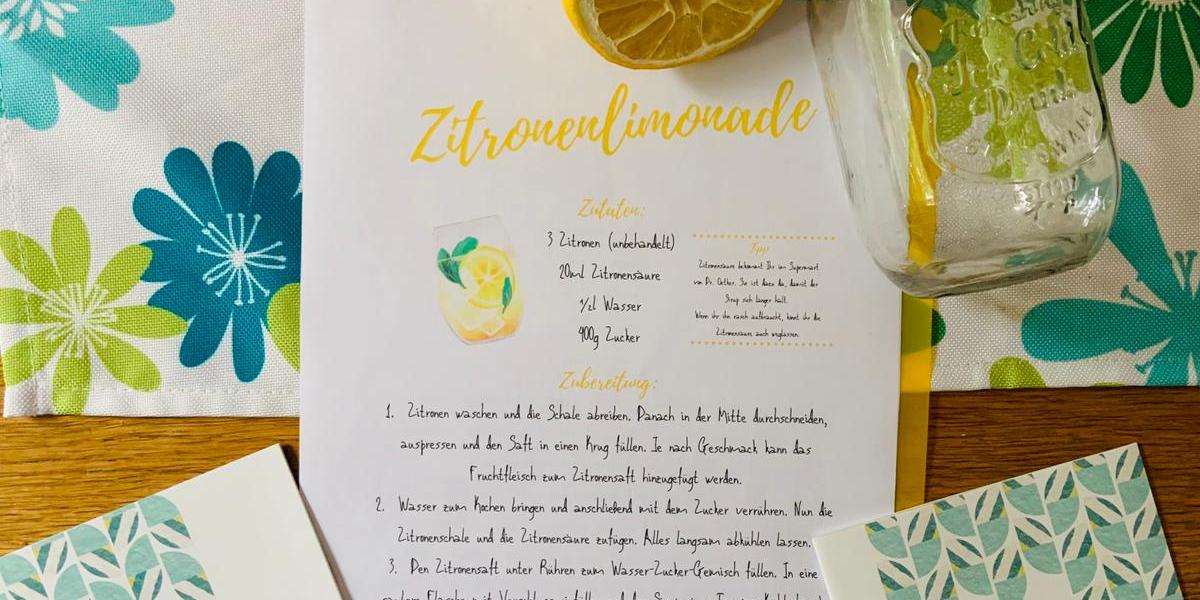 Zitronenlimonade
Zutaten:
3 Zitronen (unbehandelt)
20ml Zitronensäure
1/2l Wasser
900g Zucker
Tipp:
Zitronensäure bekommt Ihr im Supermarkt
von Dr. Oetker. Sie ist dazu da, damit der
Sirup sich länger hält.
Wenn ihr ihn rasch aufbraucht, könnt ihr die
Zitronensäure auch weglassen.
Zubereitung:
1. Zitronen waschen und die Schale abreiben. Danach in der Mitte durchschneiden,
auspressen und den Saft in einen Krug füllen. Je nach Geschmack kann das
Fruchtfleisch zum Zitronensaft hinzugefügt werden.
2. Wasser zum Kochen bringen und anschließend mit dem Zucker verrühren. Nun die
Zitronenschale und die Zitronensäure zufügen. Alles langsam abkühlen lassen.
3. Den Zitronensaft unter Rühren zum Wasser-Zucker-Gemisch füllen. In eine